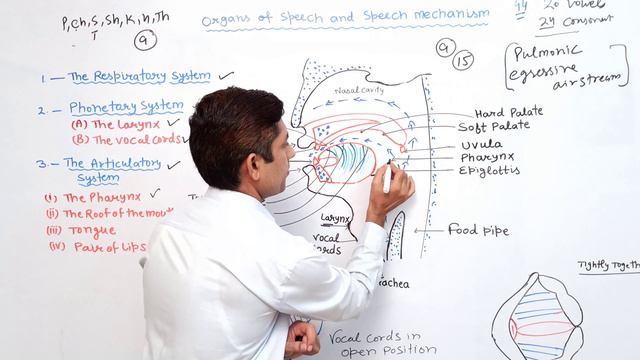 P, ch, S, Sh, K, h, Th
T
9
Organs of Speech and Speech mechanism
44
20 vowel
24 consonant
9
15
[Pulmonic
egressive
airstream]
1.— The Respiratory System ✓
2.— Phonetary System
(A) The Larynx ✓
(B) The vocal cords ✓
3.— The Articulatory ✓
System
(i) The Pharynx ✓
(ii) The Roof of the mouth
(iii) Tongue
(iv) Pair of Lips
Nasal cavity
Hard Palate
Soft Palate
Uvula
Pharynx
Epiglottis
Larynx
vocal
cords
Food pipe
Vocal cords in
open position
Tightly Together